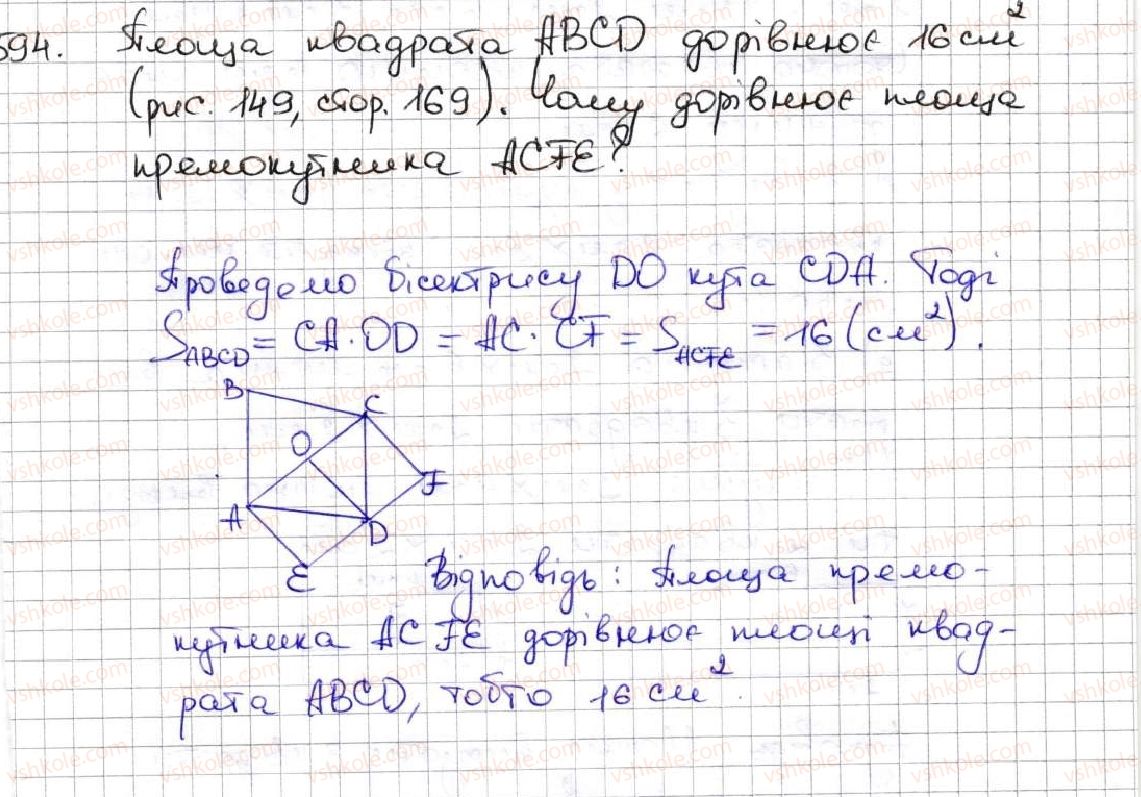 594. Площа квадрата ABCD дорівнює 16 см²
(рис. 149, стор. 169). Чому дорівнює площа
прямокутника ACFE?
Проведемо бісектрису DO кута CDA. Тоді
S_ABCD = CA · OD = AC · CF = S_ACFE = 16 (см²).
B
C
O
F
A
D
E
Відповідь: Площа прямо-
кутника ACFE дорівнює площі квад-
рата ABCD, тобто 16 см².